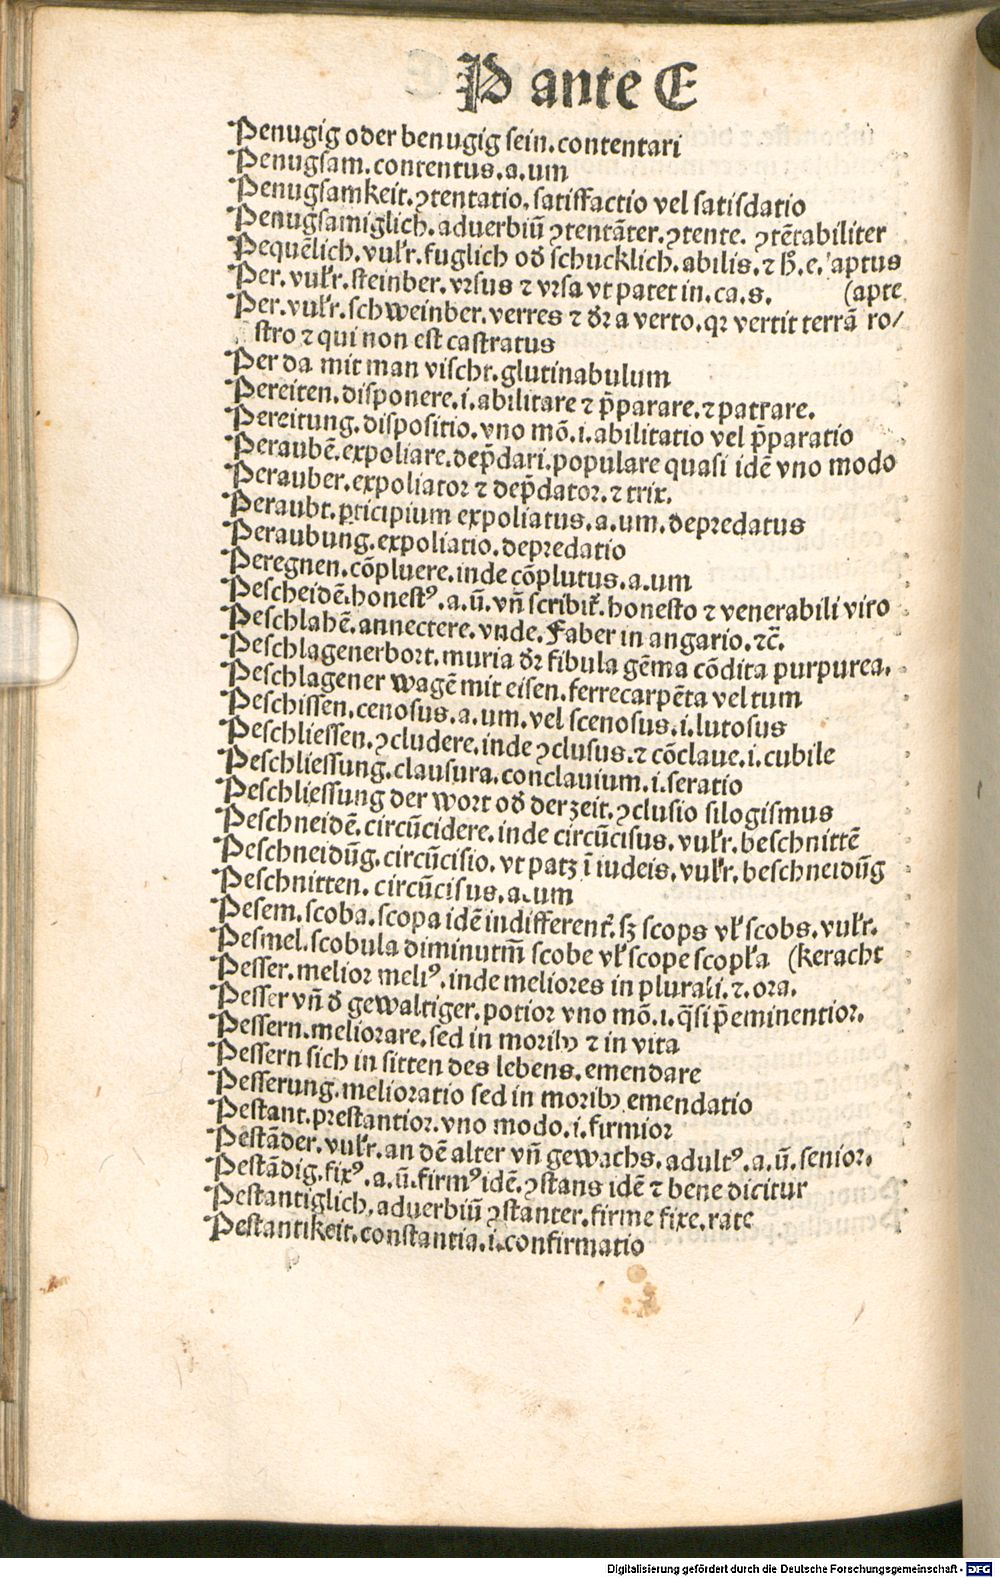 P ante E
Penugig oder benugig sein.contentari
Penugsam.contentus.a.um
Penugsamkeit.ꝯtentatio.satiffactio vel satisdatio
Penugsamiglich.aduerbiū ꝯtentāter.ꝯtente. ꝯtētabiliter
Pequēlich.vul̕r.fuglich od̕ schucklich.abilis.⁊ h̄.e.aptus
Per.vul̕r.steinber.vrsus ⁊ vrsa vt patet in.ca.s. (apte
Per.vul̕r.schweinber.verres ⁊ dr̄ a verto.qꝛ vertit terrā ro/
stro ⁊ qui non est castratus
Per da mit man vischt.glutinabulum
Pereiten.disponere.i.abilitare ⁊ p̄parare.⁊ patrare.
Pereitung.dispositio.vno mō.i.abilitatio vel p̄paratio
Peraubē.expoliare.dep̄dari.populare quasi idē vno modo
Perauber.expoliator ⁊ dep̄dator.⁊ trix.
Peraubt.ꝑticipium expoliatus.a.um.depredatus
Peraubung.expoliatio.depredatio
Peregnen.cōpluere.inde cōplutus.a.um
Pescheidē.honestꝰ.a.ū.vn̄ scribit̕.honesto ⁊ venerabili viro
Peschlahē.annectere.vnde.Faber in angario.⁊c̄.
Peschlagenerbort.muria dr̄ fibula gēma cōdita purpurea.
Peschlagener wagē mit eisen.ferrecarpēta vel tum
Peschissen.cenosus.a.um.vel scenosus.i.lutosus
Peschliessen.ꝯcludere.inde ꝯclusus.⁊ cōclaue.i.cubile
Peschliessung.clausura.conclauium.i.seratio
Peschliessung der wort od̕ der zeit.ꝯclusio silogismus
Peschneidē.circūcidere.inde circūcisus.vul̕r.beschnittē
Peschneidūg.circūcisio.vt patꝫ ī iudeis.vul̕r.beschneidūg
Peschnitten.circūcisus.a.um
Pesem.scoba.scopa idē indifferent̕.sꝫ scops vl̕ scobs.vul̕r.
Pesmel.scobula diminutm̄ scobe vl̕ scope scopl̕a (keracht
Pesser.melior meliꝰ.inde meliores in plurali.⁊.ora.
Pesser vn̄ d̕ gewaltiger.potior vno mō.i.q̄si p̄eminentior.
Pessern.meliorare.sed in moribꝫ ⁊ in vita
Pessern sich in sitten des lebens.emendare
Pesserung.melioratio sed in moribꝫ emendatio
Pestant.prestantior.vno modo.i.firmior
Pestāder.vul̕r.an dē alter vn̄ gewachs.adultꝰ.a.ū.senior.
Pestādig.fixꝰ.a.ū.firmꝰ idē.ꝯstans idē ⁊ bene dicitur
Pestantiglich.aduerbiū ꝯstanter.firme fixe.rate
Pestantikeit.constantia.i.confirmatio
Digitalisierung gefördert durch die Deutsche Forschungsgemeinschaft - DFG